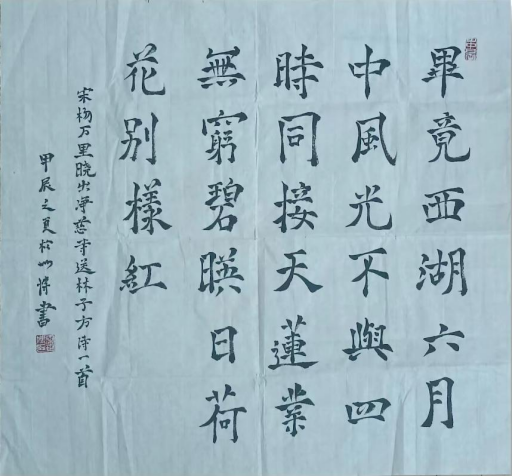 畢竟西湖六月
中風光不與四
時同接天蓮葉
無窮碧暎日荷
花别樣紅
宋杨万里晓出净慈寺送林子方诗一首
甲辰之夏於書